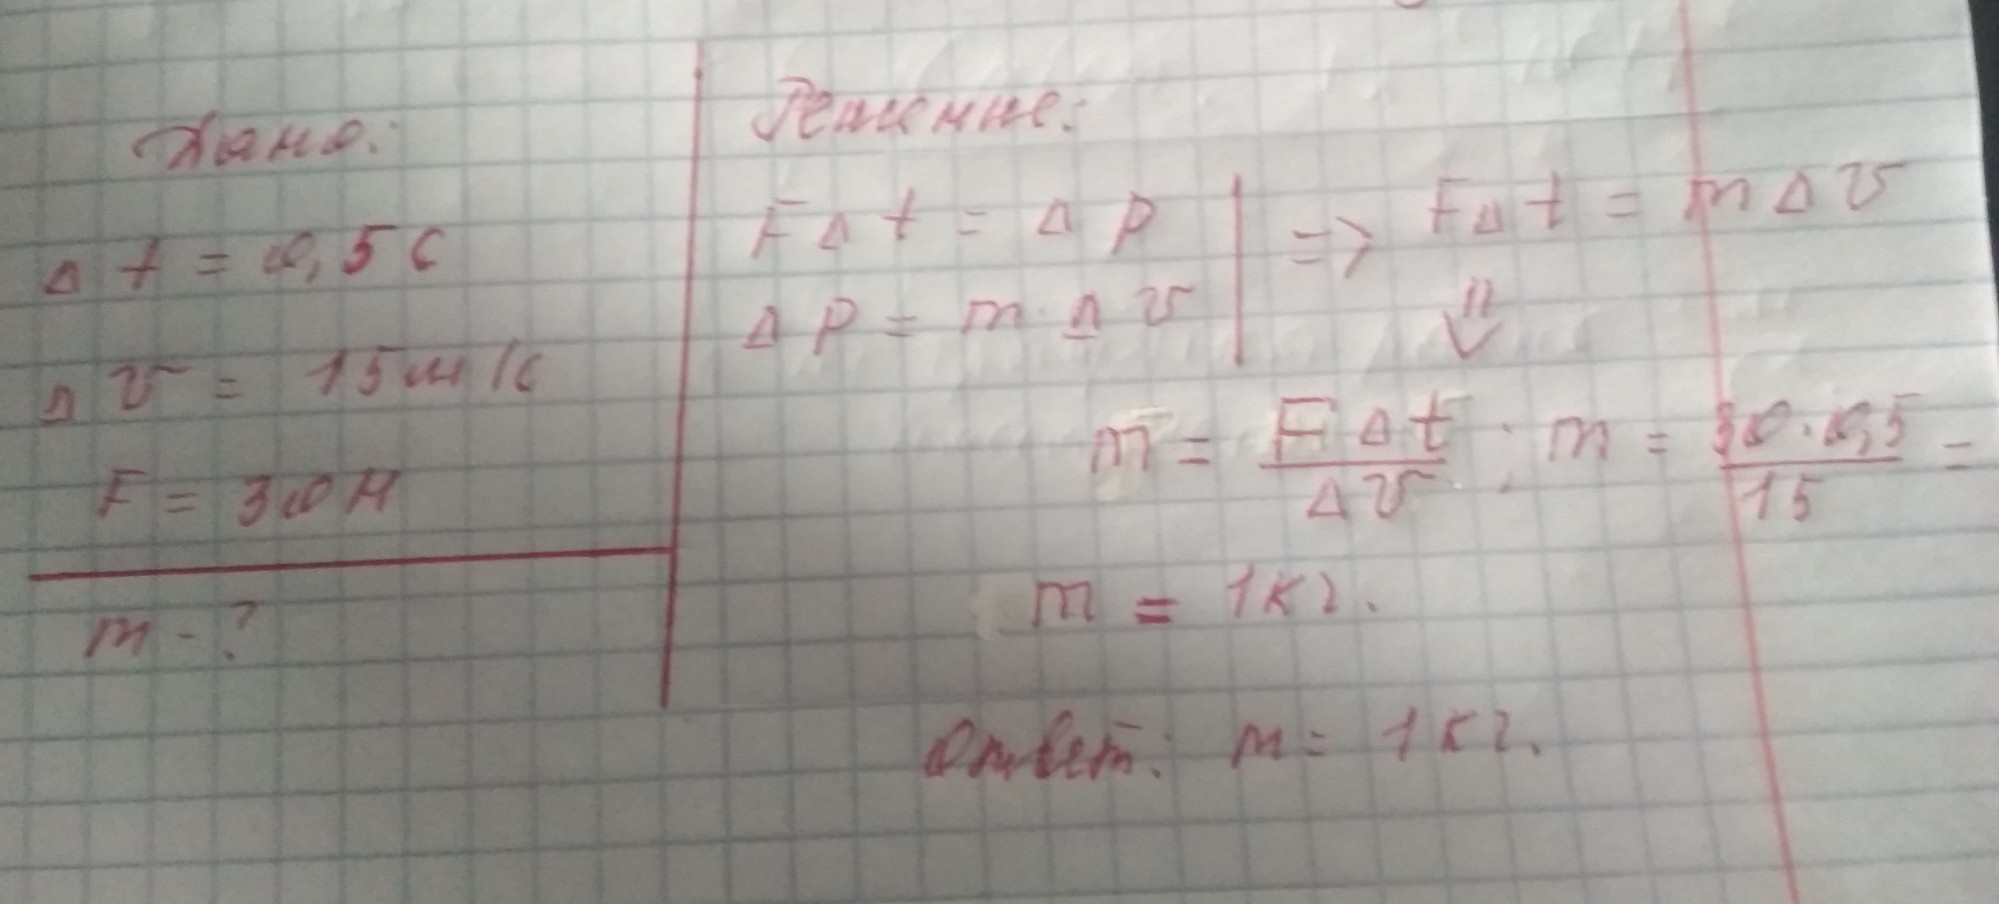 Дано:
Δt = 0,5 с
Δv = 15 м/с
F = 30 Н
m - ?
Решение:
FΔt = Δp | => FΔt = mΔv
Δp = m·Δv | ⇓
m = FΔt/Δv ; m = 30·0,5/15 =
m = 1 кг.
Ответ: m = 1 кг.